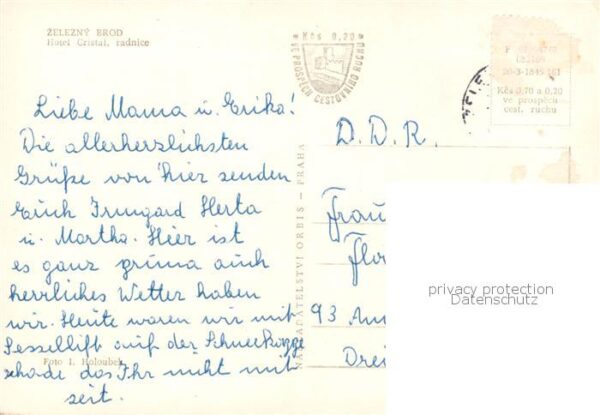 ŽELEZNÝ BROD
Hotel Cristal, radnice
Kčs 0,20
VE PROSPĚCH CESTOVNÍHO RUCHU
Kčs 0,70 a 0,20
ve prospěch
cest. ruchu
Liebe Mama u. Erika!
Die allerherzlichsten
Grüße von hier senden
Euch Irmgard Herta
u. Martha. Hier ist
es ganz prima auch
herrliches Wetter haben
wir. Heute waren wir mit
Sessellift auf der Schneekoppe
schade das Ihr nicht mit
seit.
Foto J. Holoubek
NAKLADATELSTVÍ ORBIS – PRAHA
D. D. R.
Frau
Flo
93 Ann
Drei
privacy protection
Datenschutz